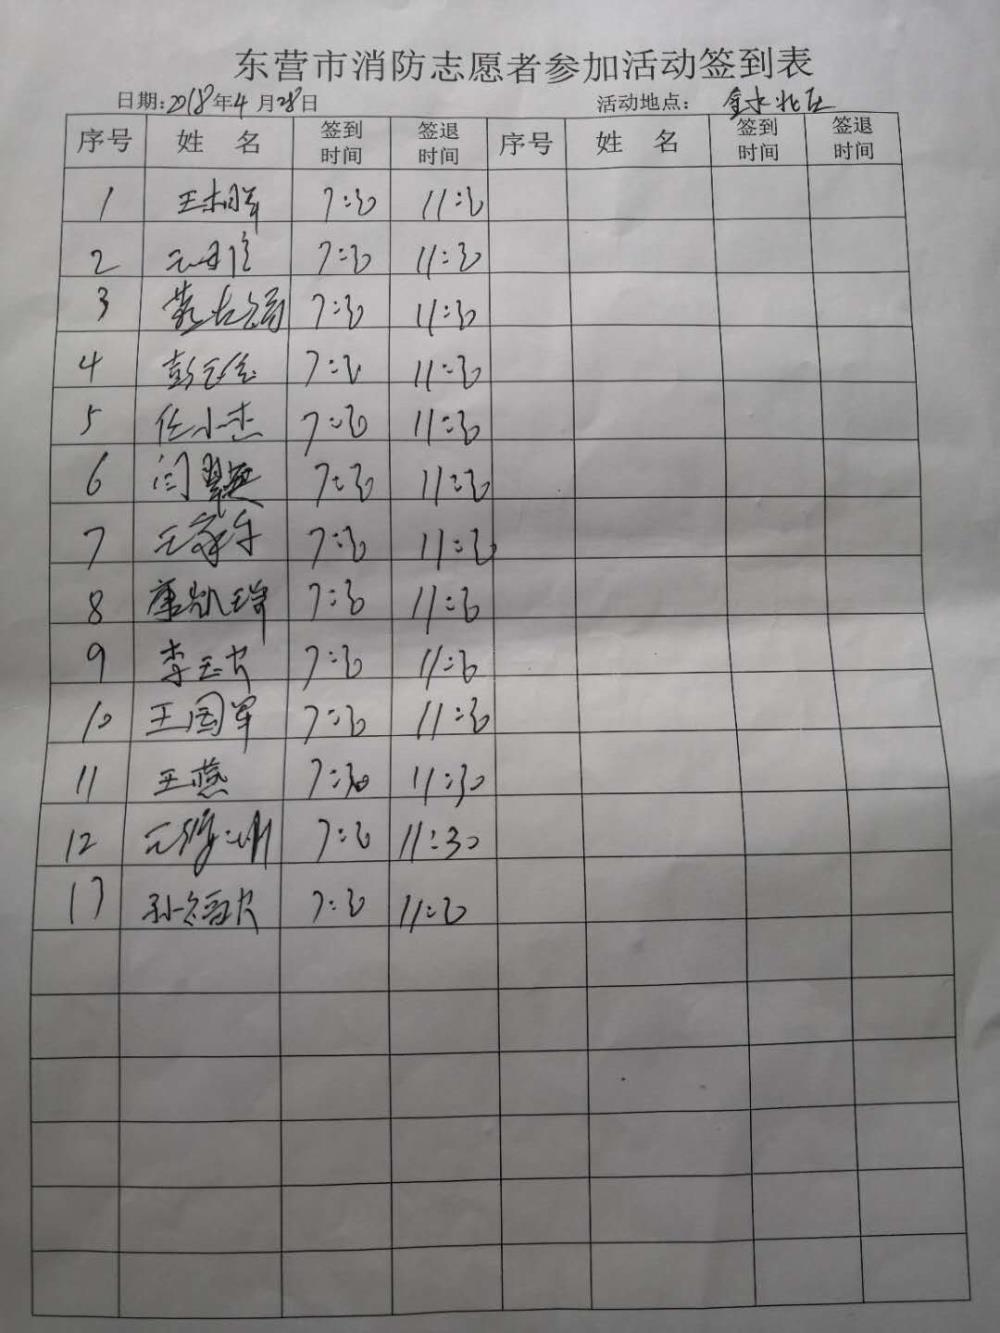 东营市消防志愿者参加活动签到表
日期:2018年4月28日 活动地点: 金水北区
序号 姓 名 签到时间 签退时间 序号 姓 名 签到时间 签退时间
1 王相军 7:30 11:30
2 7:30 11:30
3 7:30 11:30
4 7:30 11:30
5 任小杰 7:30 11:30
6 闫翠英 7:30 11:30
7 7:30 11:30
8 唐凯瑞 7:30 11:30
9 李玉 7:30 11:30
10 王国军 7:30 11:30
11 王燕 7:30 11:30
12 7:30 11:30
13 7:30 11:30